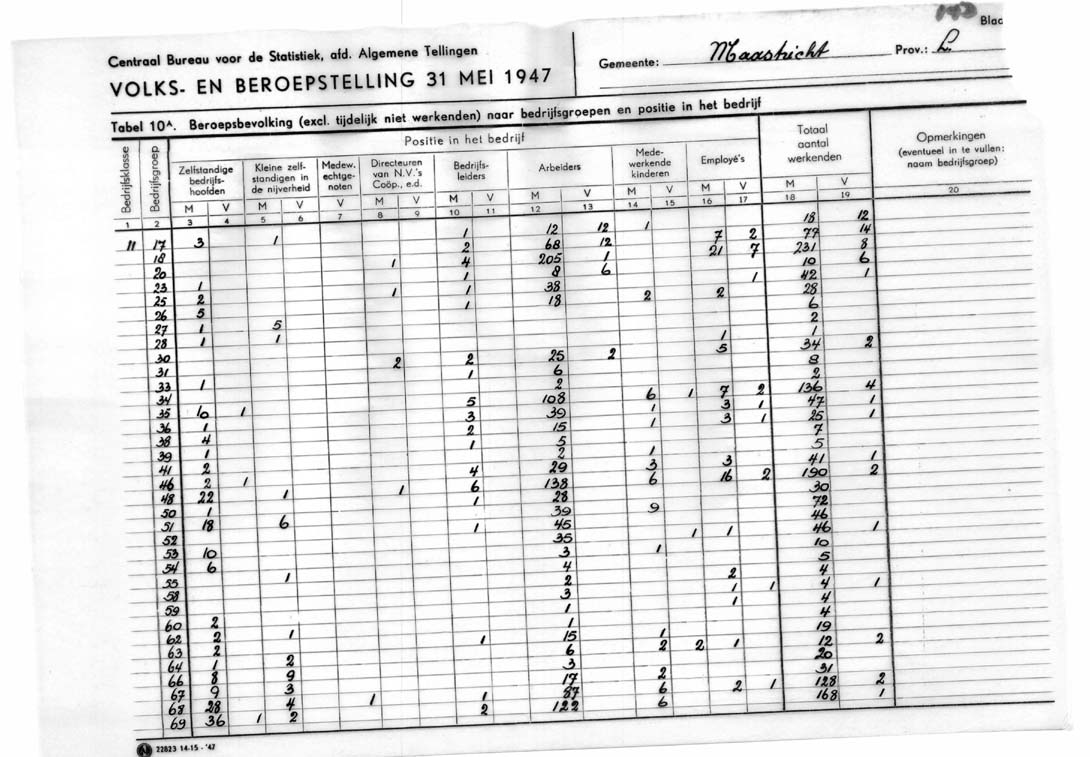 143
Blad
Centraal Bureau voor de Statistiek, afd. Algemene Tellingen
VOLKS- EN BEROEPSTELLING 31 MEI 1947
Gemeente: Maastricht Prov.: L.
Tabel 10A. Beroepsbevolking (excl. tijdelijk niet werkenden) naar bedrijfsgroepen en positie in het bedrijf
Bedrijfsklasse
Bedrijfsgroep
Positie in het bedrijf
Zelfstandige bedrijfs-hoofden
Kleine zelf-standigen in de nijverheid
Medew. echtge-noten
Directeuren van N.V.'s Coöp., e.d.
Bedrijfs-leiders
Arbeiders
Mede-werkende kinderen
Employé's
Totaal aantal werkenden
Opmerkingen (eventueel in te vullen: naam bedrijfsgroep)
M V M V V M V M V M V M V M V M V
1 2 3 4 5 6 7 8 9 10 11 12 13 14 15 16 17 18 19 20
11 17 3 1 1 12 12 1 18 12
18 2 68 12 7 2 77 14
20 1 4 205 1 21 7 231 8
23 1 1 8 6 10 6
25 2 1 1 38 1 42 1
26 5 1 18 2 2 28
27 1 5 6
28 1 1 2
30 1 1
31 2 2 25 2 5 34 2
33 1 1 6 8
34 2 2
35 10 1 5 108 6 1 7 2 136 4
36 1 3 39 1 3 1 47 1
38 4 2 15 1 3 1 25 1
39 1 1 5 7
41 2 2 1 5
46 2 1 4 29 3 3 41 1
48 22 1 1 6 138 6 16 2 190 2
50 1 1 28 30
51 18 6 39 9 72
52 1 45 46
53 10 35 1 1 46 1
54 6 3 1 10
55 1 4 5
58 2 2 4
59 3 1 1 4 1
60 2 1 1 4
62 2 1 1 4
63 2 1 15 1 19
64 1 2 6 2 2 1 12 2
66 8 9 3 20
67 9 3 17 2 31
68 28 4 1 1 87 6 2 1 128 2
69 36 1 2 2 122 6 168 1
N 22823 14-15-'47